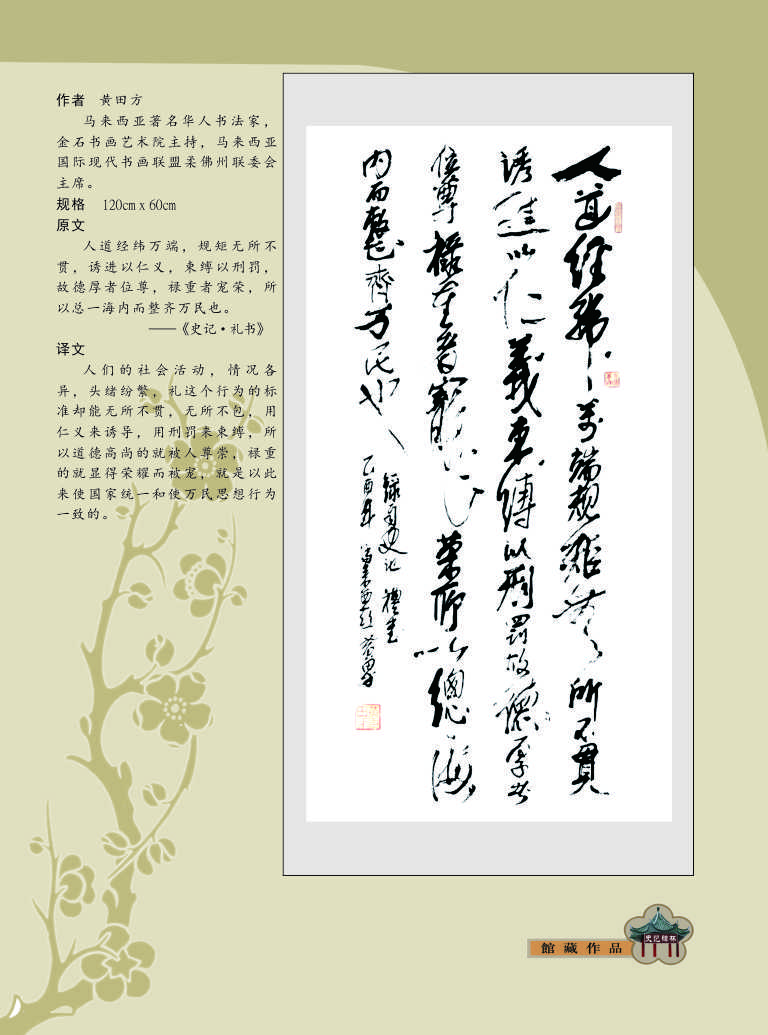 作者 黄田方
马来西亚著名华人书法家，
金石书画艺术院主持，马来西亚
国际现代书画联盟柔佛州联委会
主席。
规格 120cm x 60cm
原文
人道经纬万端，规矩无所不
贯，诱进以仁义，束缚以刑罚，
故德厚者位尊，禄重者宠荣，所
以总一海内而整齐万民也。
——《史记·礼书》
译文
人们的社会活动，情况各
异，头绪纷繁，礼这个行为的标
准却能无所不贯，无所不包，用
仁义来诱导，用刑罚来束缚，所
以道德高尚的就被人尊崇，禄重
的就显得荣耀而被宠，就是以此
来使国家统一和使万民思想行为
一致的。
人道經緯萬端規矩無所不貫
誘進以仁義束縛以刑罰故德厚者
位尊祿重者寵榮所以總一海
内而整齊万民也
錄自史记禮書
乙酉年
館藏作品
史记碑林